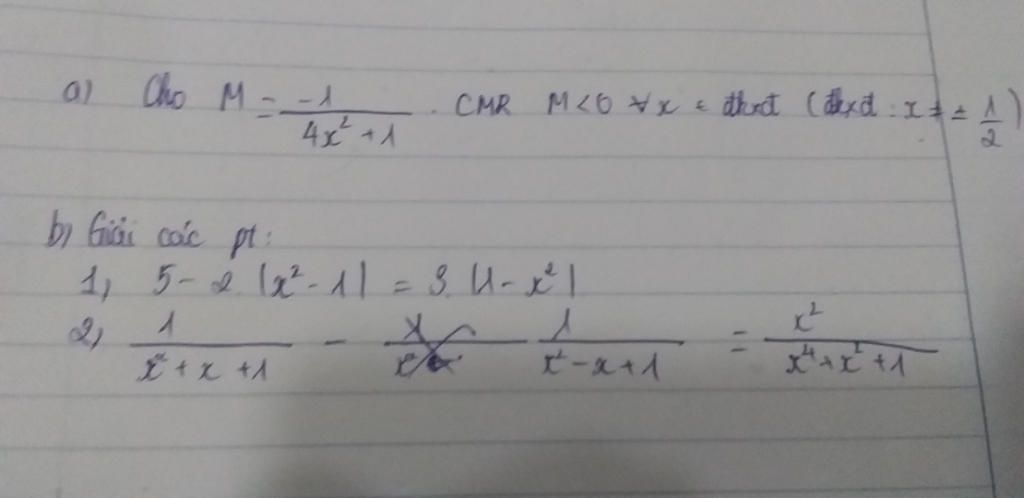 a) Cho M = -1/(4x² + 1) . CMR M < 0 ∀x ∈ đkxđ (đkxđ : x ≠ ± 1/2)
b) Giải các pt :
1, 5 - 2 |x² - 1| = 3. |1 - x²|
2, 1/(x² + x + 1) - 1/(x² - x + 1) = x²/(x⁴ + x² + 1)